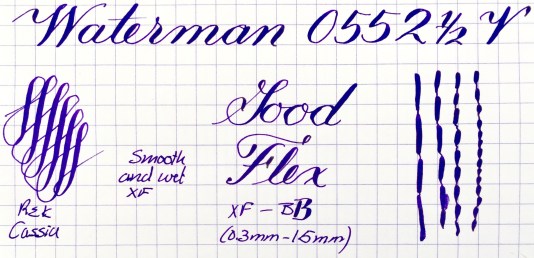 Waterman 0552½ V
Good
Flex
XF – BB
(0.3mm – 1.5mm)
Smooth
and wet
XF
R&K
Cassia